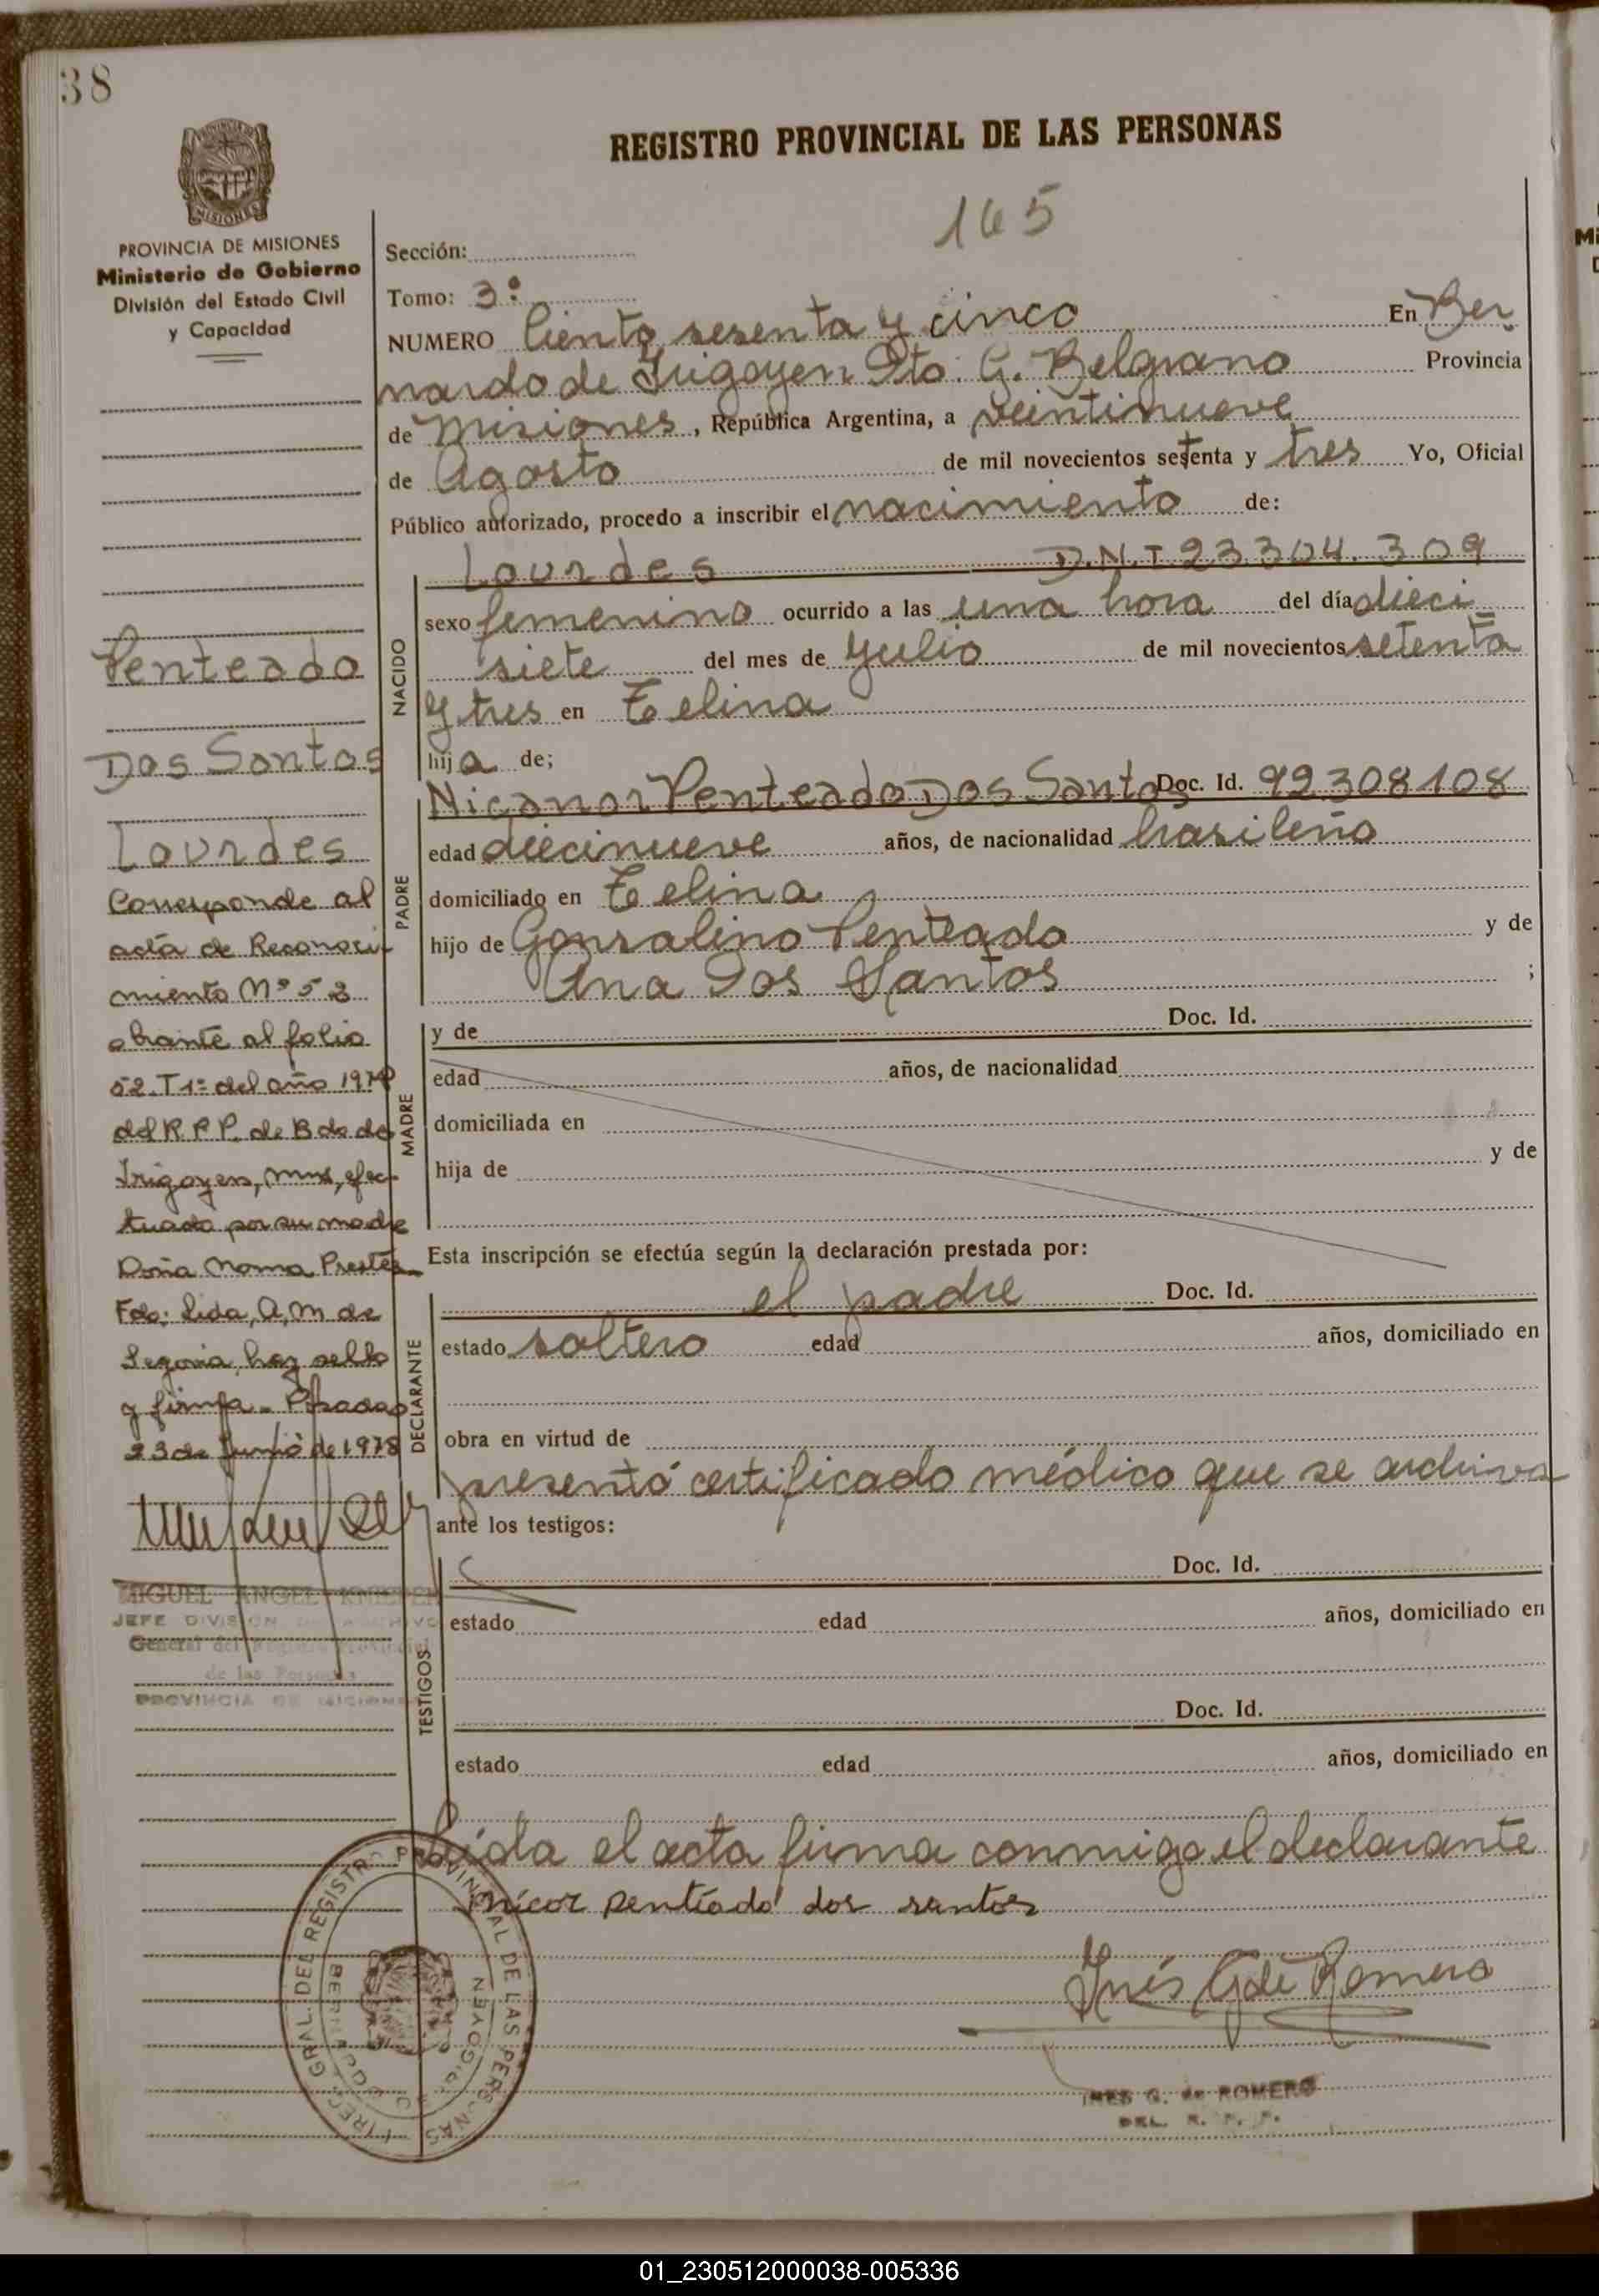 38
REGISTRO PROVINCIAL DE LAS PERSONAS
165
PROVINCIA DE MISIONES
Ministerio de Gobierno
División del Estado Civil
y Capacidad
Sección:
Tomo: 3º
NUMERO Ciento sesenta y cinco En Ber
nardo de Irigoyen Dto. G. Belgrano Provincia
de Misiones, República Argentina, a veintinueve
de Agosto de mil novecientos setenta y tres Yo, Oficial
Público autorizado, procedo a inscribir el nacimiento de:
Lourdes D.N.I 23304.309
NACIDO
sexo femenino ocurrido a las una hora del día dieci
siete del mes de Julio de mil novecientos setenta
y tres en Celina
hija de;
PADRE
Nicanor Penteado Dos Santos Doc. Id. 92308108
edad diecinueve años, de nacionalidad brasileño
domiciliado en Celina
hijo de Gonsalino Penteado y de
Ana Dos Santos ;
MADRE
y de Doc. Id.
edad años, de nacionalidad
domiciliada en
hija de y de
Esta inscripción se efectúa según la declaración prestada por:
DECLARANTE
el padre Doc. Id.
estado soltero edad años, domiciliado en
obra en virtud de
presentó certificado médico que se archiva
ante los testigos:
TESTIGOS
Doc. Id.
estado edad años, domiciliado en
Doc. Id.
estado edad años, domiciliado en
Leída el acta firma conmigo el declarante
nicor pentiado dos santos
Inés G de Romero
INES G. de ROMERO
DEL. R. P. P.
Penteado
Dos Santos
Lourdes
Corresponde al
acta de Reconoci
miento Nº 53
obrante al folio
52. T 1º del año 1978
del R P P. de Bdo de
Irigoyen, Mnes, efec
tuada por su madre
Doña Norma Prestes
Fdo: Lida, A, M de
Segovia, hay sello
y firma. Posadas
23 de Junio de 1978
MIGUEL ANGEL
JEFE DIVISION ARCHIVO
General del Registro Provincial
de las Personas
PROVINCIA DE MISIONES
DIREC. GRAL. DEL REGISTRO PROVINCIAL DE LAS PERSONAS
01_230512000038-005336